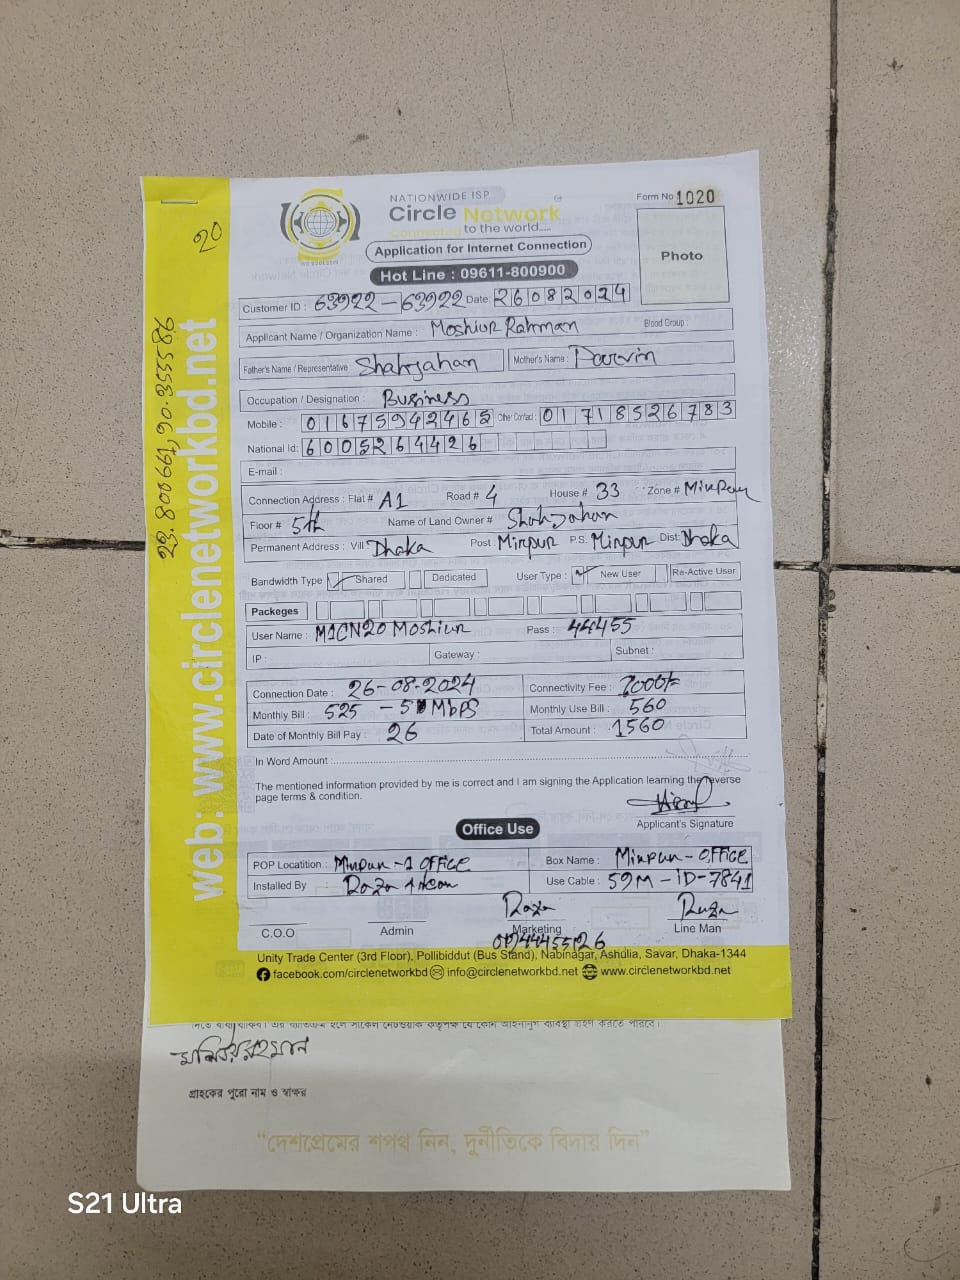 NATIONWIDE ISP
Circle Network
Connected to the world....
Form No 1020
Application for Internet Connection
Hot Line : 09611-800900
Photo
20
23.800661, 90.355586
web: www.circlenetworkbd.net
Customer ID : 63922-63922 Date: 26082024
Applicant Name / Organization Name : Moshiur Rahman Blood Group :
Father's Name / Representative Shahjahan Mother's Name :
Occupation / Designation : Business
Mobile : Other Contact : 01718526783
National Id: 6005264426
E-mail :
Connection Address : Flat # A1 Road # 4 House # 33 Zone # Mirpur
Floor # 5th Name of Land Owner # Shahjahan
Permanent Address : Vill Dhaka Post : Mirpur P.S. Mirpur Dist: Dhaka
Bandwidth Type Shared Dedicated User Type : New User Re-Active User
Packeges
User Name : M1CN20 Moshiur Pass : 44455
IP : Gateway : Subnet :
Connection Date : 26-08-2024 Connectivity Fee :
Monthly Bill : 525 - Mbps Monthly Use Bill : 560
Date of Monthly Bill Pay : 26 Total Amount : 1560
In Word Amount
The mentioned information provided by me is correct and I am signing the Application learning the reverse
page terms & condition.
Applicant's Signature
Office Use
POP Locatition : Mirpur-1 OFFICE Box Name : Mirpur-OFFICE
Installed By Use Cable : 59M-ID-7841
Raza
C.O.O Admin Marketing Line Man
Unity Trade Center (3rd Floor), Pollibiddut (Bus Stand), Nabinagar, Ashulia, Savar, Dhaka-1344
facebook.com/circlenetworkbd info@circlenetworkbd.net www.circlenetworkbd.net
গ্রাহকের পুরো নাম ও স্বাক্ষর
“দেশপ্রেমের শপথ নিন, দুর্নীতিকে বিদায় দিন”
S21 Ultra